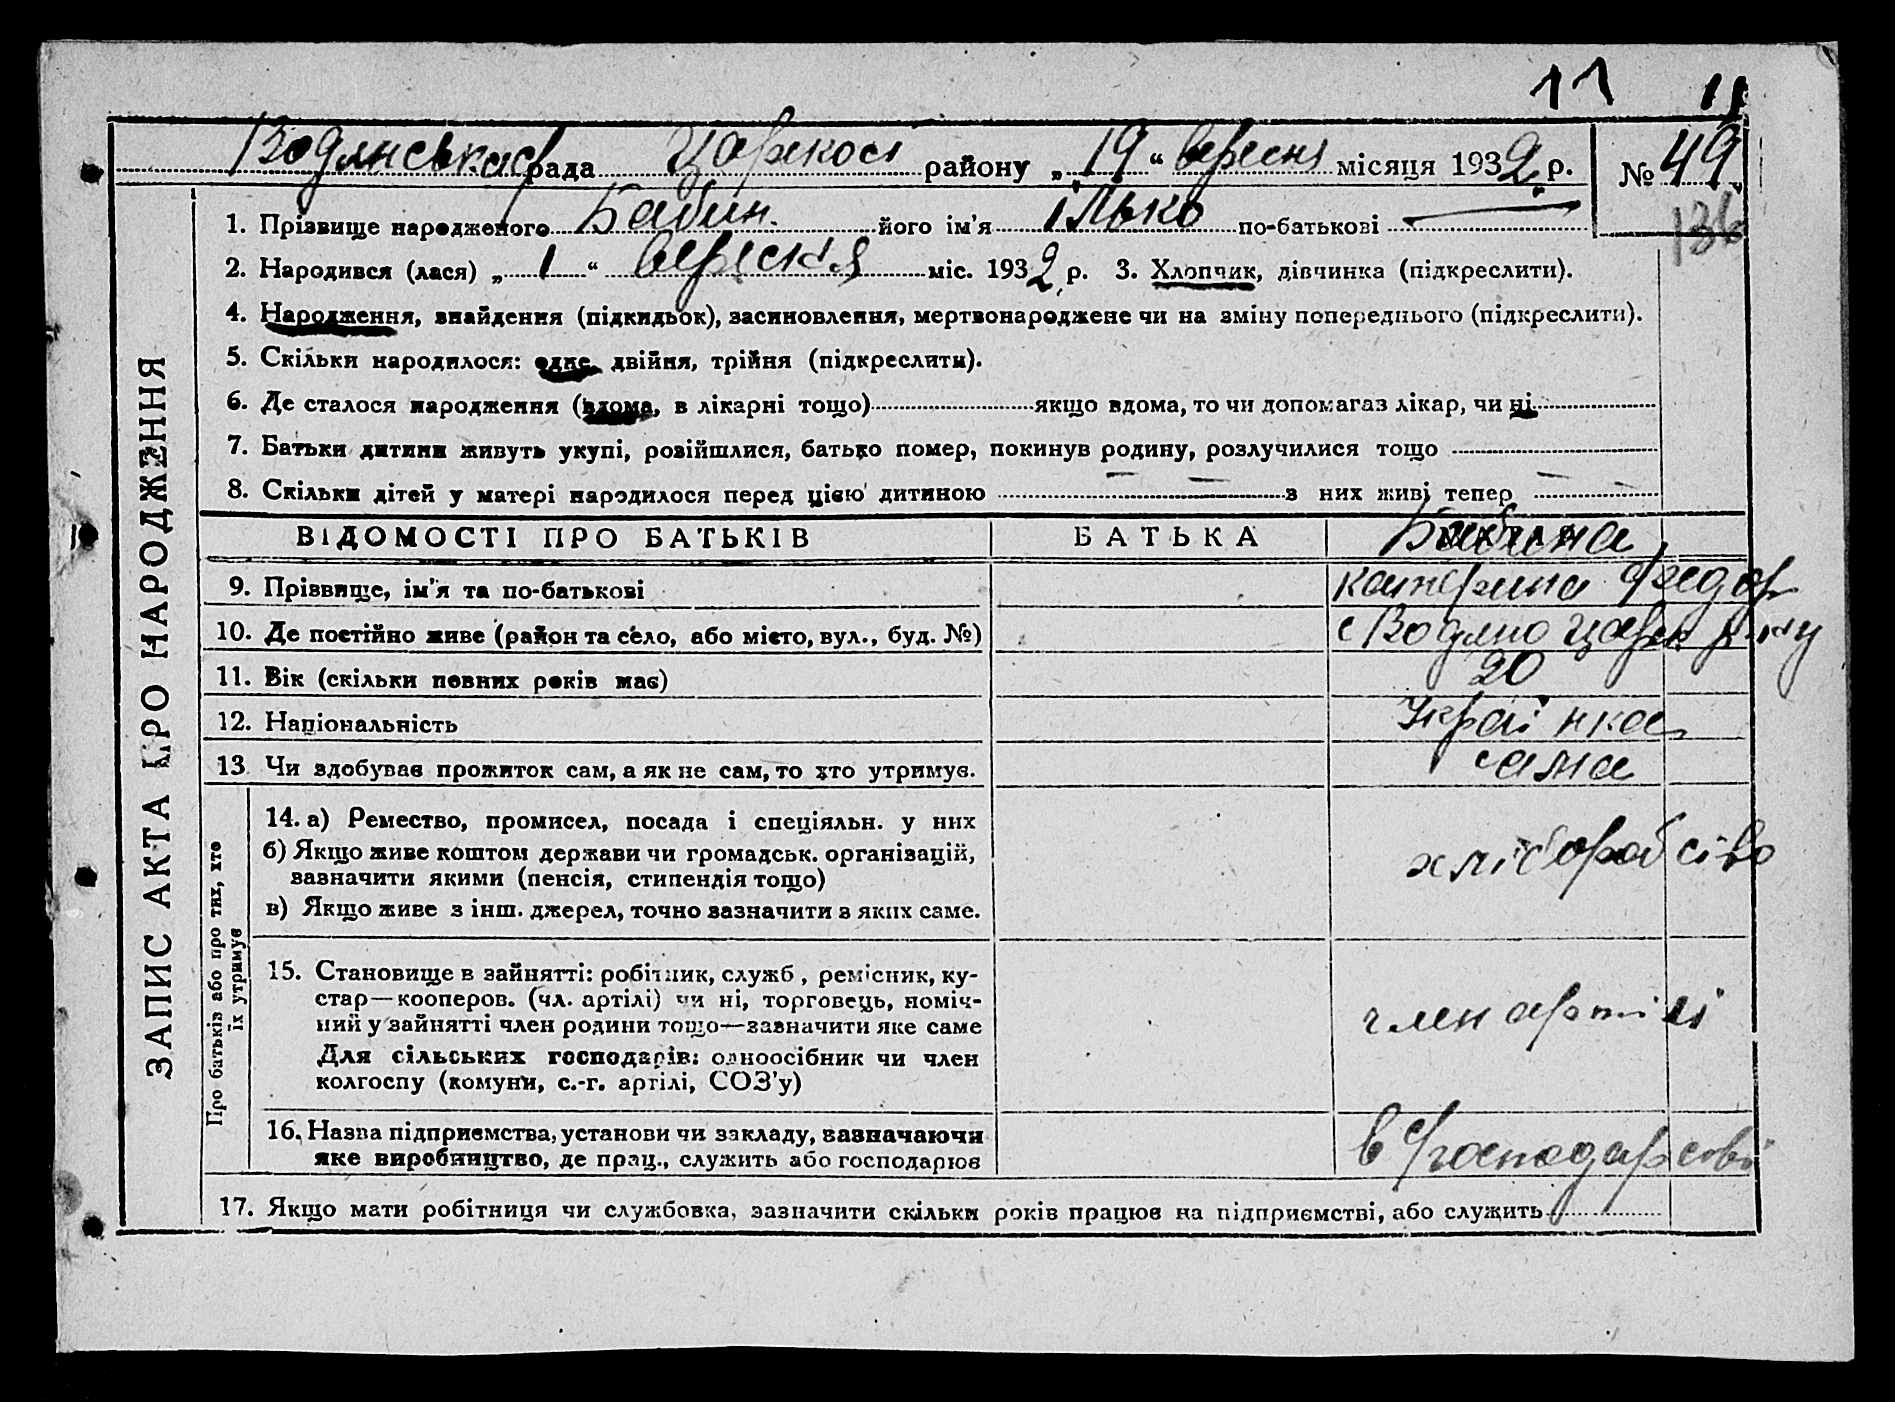 11 11
Водянська рада Царекост району „ 19 “ вересня місяця 1932 р. № 49
136
1. Прізвище народженого Бабин. його ім'я ілько по-батькові —
2. Народився (лася) „ 1 “ вересня міс. 1932 р. 3. Хлопчик, дівчинка (підкреслити).
4. Народження, знайдення (підкидьок), засиновлення, мертвонароджене чи на зміну попереднього (підкреслити).
5. Скільки народилося: одне, двійня, трійня (підкреслити).
6. Де сталося народження (вдома, в лікарні тощо) якщо вдома, то чи допомагав лікар, чи ні
7. Батьки дитини живуть укупі, розійшлися, батько помер, покинув родину, розлучилися тощо
8. Скільки дітей у матері народилося перед цією дитиною — — з них живі тепер —
ЗАПИС АКТА ПРО НАРОДЖЕННЯ
ВІДОМОСТІ ПРО БАТЬКІВ БАТЬКА Бабина
9. Прізвище, ім'я та по-батькові катерина Федор
10. Де постійно живе (район та село, або місто, вул., буд. №) с Водяно царек р-ну
11. Вік (скільки повних років має) 20
12. Національність Українка
13 Чи здобуває прожиток сам, а як не сам, то хто утримує. сама
Про батьків або про тих, хто їх утримує
14. а) Ремество, промисел, посада і спеціяльн. у них
б) Якщо живе коштом держави чи громадськ. організацій,
зазначити якими (пенсія, стипендія тощо) хліборобство
в) Якщо живе з інш. джерел, точно зазначити з яких саме.
15. Становище в зайнятті: робітник, служб., ремісник, ку-
стар—кооперов. (чл. артілі) чи ні, торговець, поміч-
ний у зайнятті член родини тощо—зазначити яке саме член артілі
Для сільських господарів: одноосібник чи член
колгоспу (комуни, с.-г. артілі, СОЗ'у)
16. Назва підприємства, установи чи закладу, зазначаючи
яке виробництво, де прац., служить або господарює в господарстві
17. Якщо мати робітниця чи службовка, зазначити скільки років працює на підприємстві, або служить